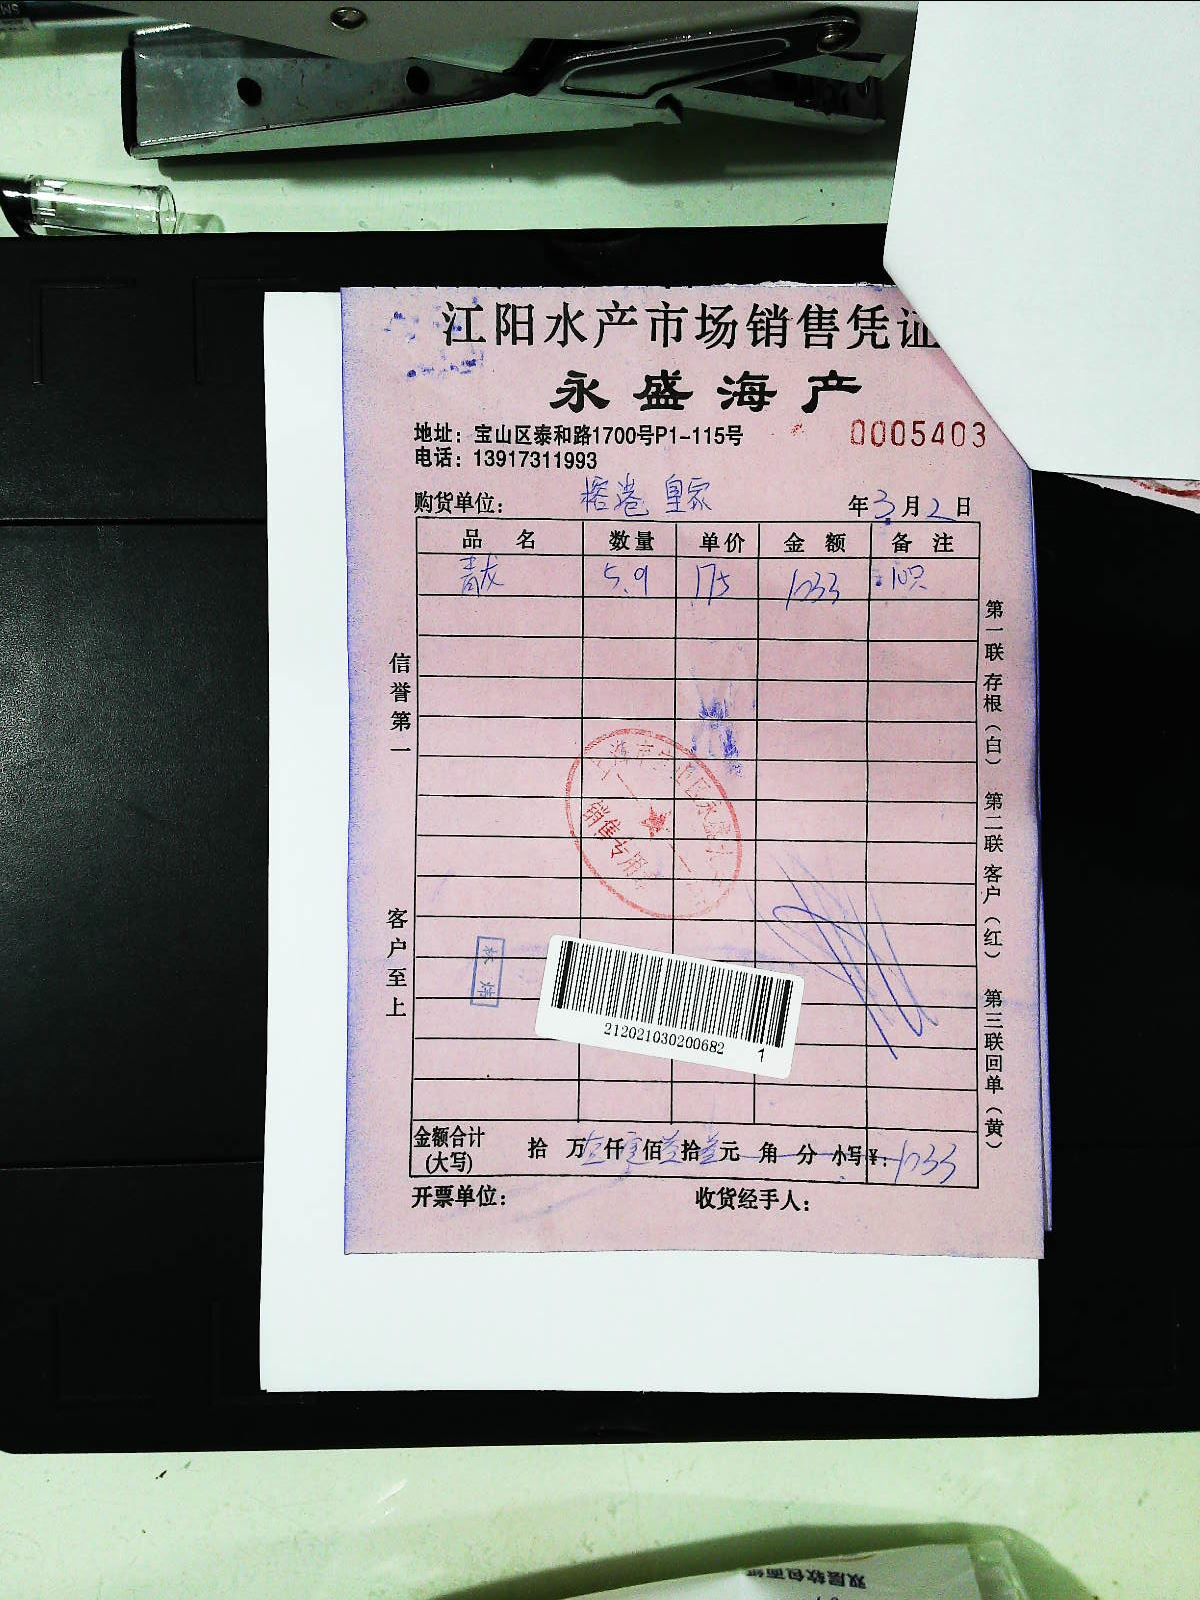 江阳水产市场销售凭证
永盛海产
地址：宝山区泰和路1700号P1-115号
0005403
电话：13917311993
购货单位： 榕港 皇家 年3月2日
品名 数量 单价 金额 备注
青龙 5.9 175 1033 10只
信誉第一
客户至上
第一联存根（白） 第二联客户（红） 第三联回单（黄）
销售专用
212021030200682
1
金额合计(大写) 拾 万壹仟零佰叁拾叁元 角 分 小写¥：1033
开票单位： 收货经手人：
双层软包面